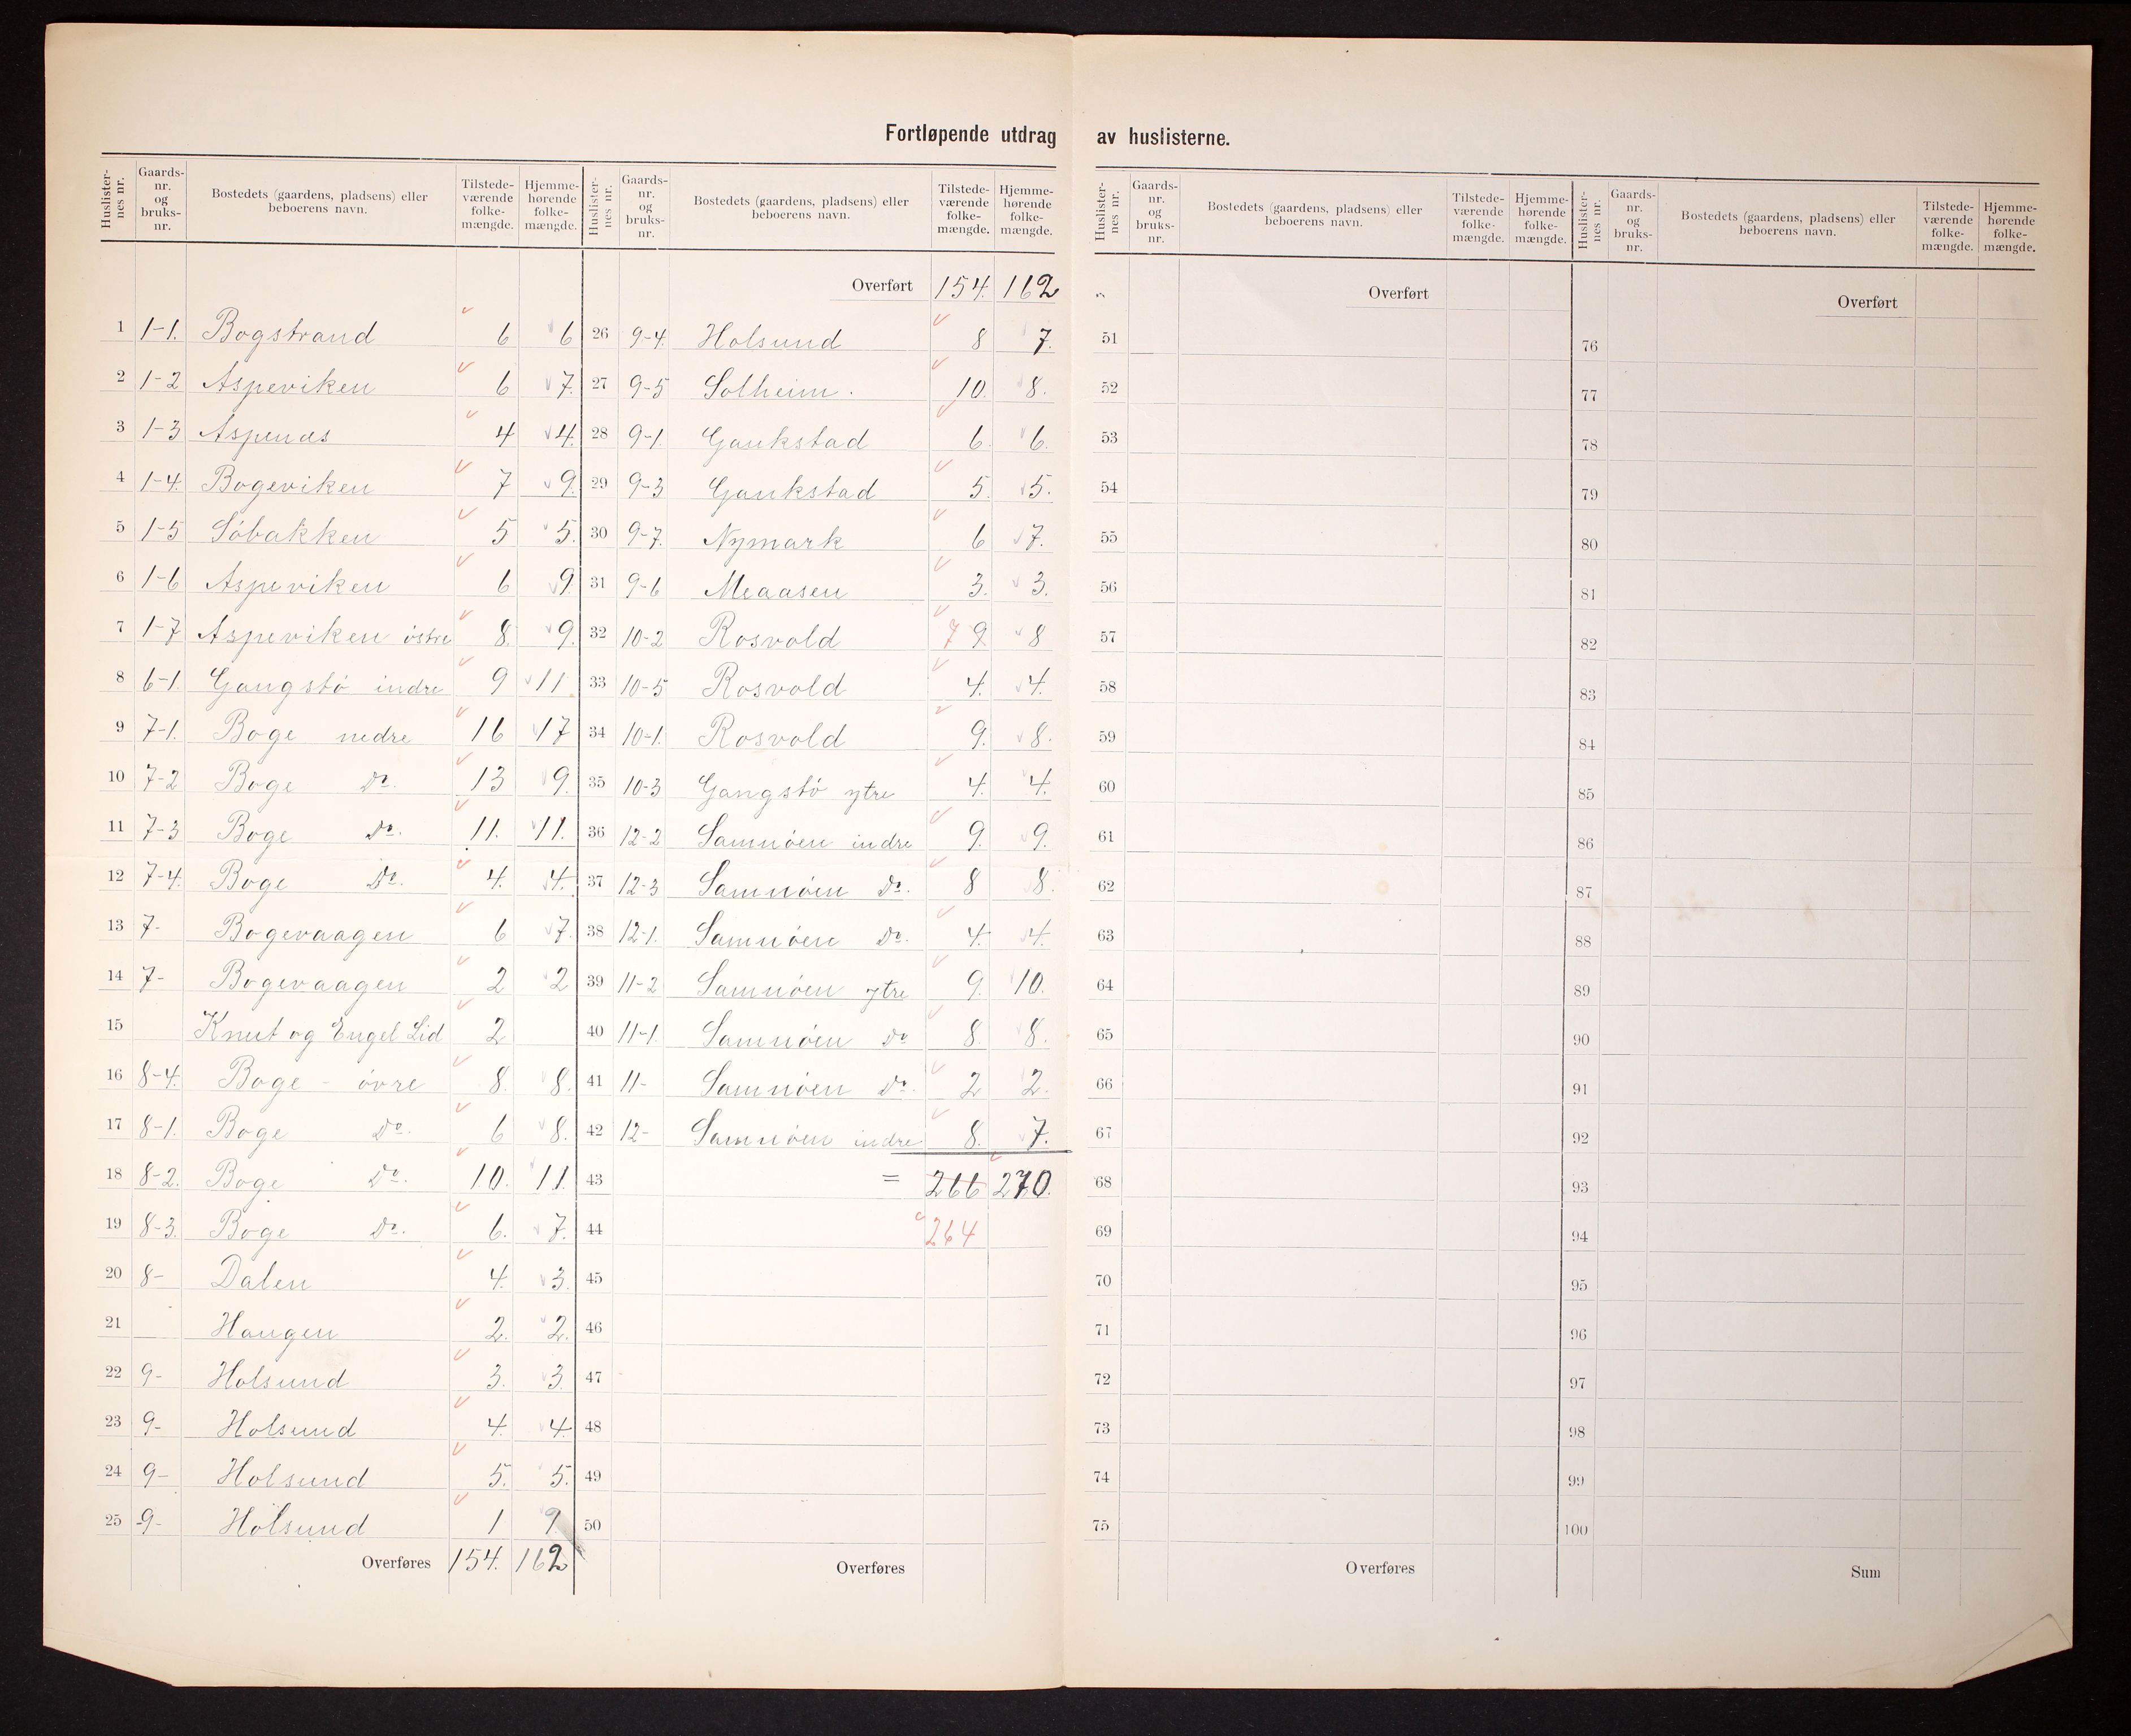 Fortløpende utdrag av huslisterne.
Huslister-nes nr. | Gaards-nr. og bruks-nr. | Bostedets (gaardens, pladsens) eller beboerens navn. | Tilstede-værende folke-mængde. | Hjemme-hørende folke-mængde.
1 1-1. Bogstrand 6 6
2 1-2 Aspeviken 6 7.
3 1-3 Aspenæs 4 4.
4 1-4. Bogeviken 7 9.
5 1-5 Söbakken 5 5.
6 1-6 Aspeviken 6 9.
7 1-7 Aspeviken östre 8. 9.
8 6-1. Gangstö indre 9 11
9 7-1. Boge nedre 16 17
10 7-2 Boge Do. 13 9.
11 7-3 Boge Do. 11. 11.
12 7-4. Boge Do. 4. 4.
13 7- Bogevaagen 6 7.
14 7- Bogevaagen 2 2
15 Knut og Engel Lid 2
16 8-4. Boge - övre 8. 8.
17 8-1. Boge Do. 6 8.
18 8-2. Boge Do. 10. 11.
19 8-3. Boge Do. 6. 7.
20 8- Dalen 4. 3.
21 Haugen 2. 2.
22 9- Holsund 3. 3.
23 9- Holsund 4. 4.
24 9- Holsund 5. 5.
25 9- Holsund 1
Overføres 154. 162
Huslister-nes nr. | Gaards-nr. og bruks-nr. | Bostedets (gaardens, pladsens) eller beboerens navn. | Tilstede-værende folke-mængde. | Hjemme-hørende folke-mængde.
Overført 154. 162
26 9-4. Holsund 8 7.
27 9-5 Solheim. 10. 8.
28 9-1. Gaukstad 6. 6.
29 9-3 Gaukstad 5. 5.
30 9-7. Nymark 6 7.
31 9-6 Meaasen 3. 3.
32 10-2 Rosvold 7 9. 8
33 10-5 Rosvold 4. 4.
34 10-1. Rosvold 9. 8.
35 10-3 Gangstö ytre 4. 4.
36 12-2 Samnöen indre 9. 9.
37 12-3 Samnöen Do. 8 8.
38 12-1. Samnöen Do. 4. 4.
39 11-2 Samnöen ytre 9. 10.
40 11-1. Samnöen Do 8. 8.
41 11- Samnöen Do. 2 2.
42 12- Samnöen indre 8. 7.
43 = 266 270.
44 264
45
46
47
48
49
50
Overføres
Huslister-nes nr. | Gaards-nr. og bruks-nr. | Bostedets (gaardens, pladsens) eller beboerens navn. | Tilstede-værende folke-mængde. | Hjemme-hørende folke-mængde.
Overført
51
52
53
54
55
56
57
58
59
60
61
62
63
64
65
66
67
68
69
70
71
72
73
74
75
Overføres
Huslister-nes nr. | Gaards-nr. og bruks-nr. | Bostedets (gaardens, pladsens) eller beboerens navn. | Tilstede-værende folke-mængde. | Hjemme-hørende folke-mængde.
Overført
76
77
78
79
80
81
82
83
84
85
86
87
88
89
90
91
92
93
94
95
96
97
98
99
100
Sum